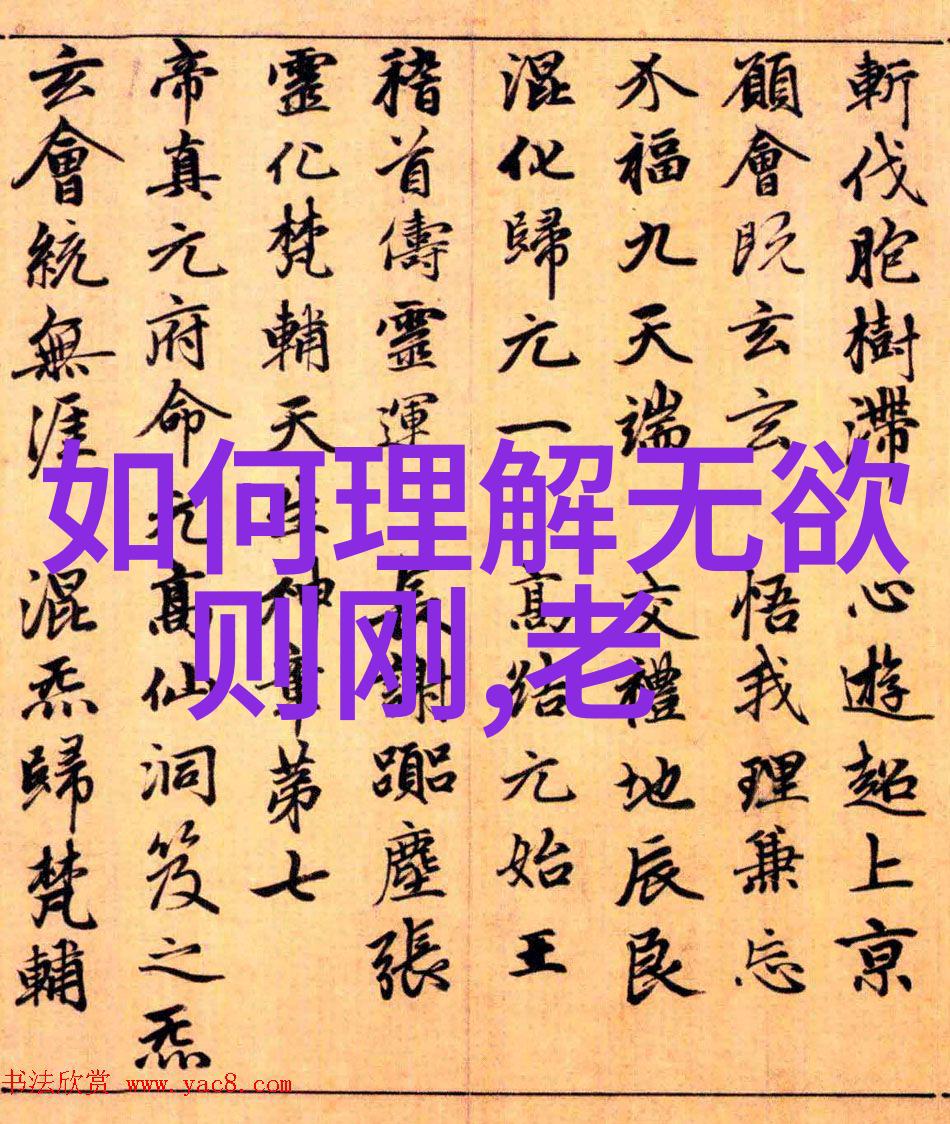 斬伐胞樹滯心遊超上京
願會既玄玄悟我理兼忘
介福九天端交禮地辰良
混化歸元一高結元始王
稽首儔靈運長謝躡塵張
靈化梵輔天生神章第七
帝真元府命元高仙洞笈之炁
玄會統無涯混炁歸梵輔
如何理解无欲
则刚,老
书法欣赏 www.yac8.com